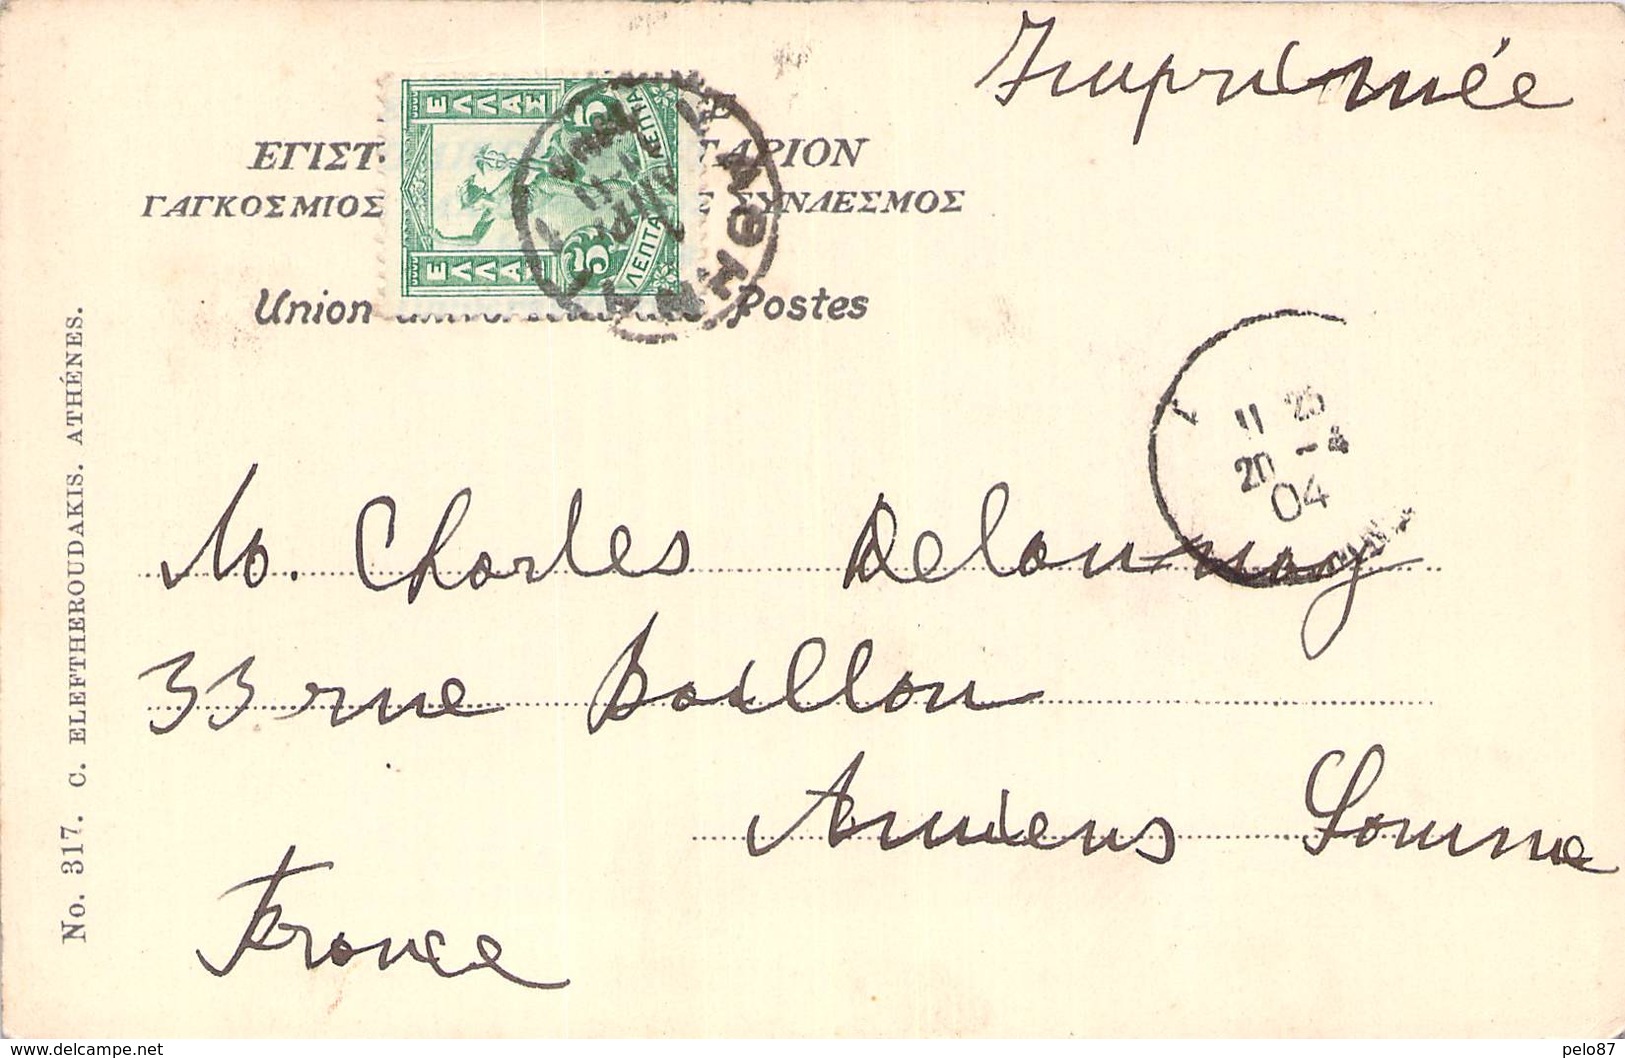 Imprimée
ΕΓΙΣΤ ΤΑΡΙΟΝ
ΓΑΓΚΟΣΜΙΟΣ ΣΥΝΔΕΣΜΟΣ
Union Postes
ΕΛΛΑΣ
ΕΛΛΑΣ
5 ΛΕΠΤΑ
5 ΛΕΠΤΑ
11 25
20 - 4
04
M. Charles Delaunay
33 rue Boillon
Amiens Somme
France
No. 317. C. ELEFTHEROUDAKIS. ATHÉNES.
www.delcampe.net
pelo87